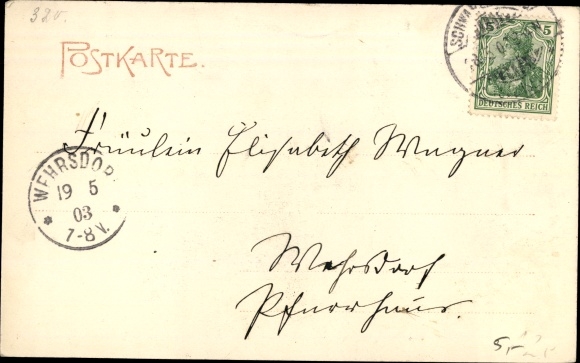 32v.
POSTKARTE.
5
DEUTSCHES REICH
Fräulein Elisabeth Wagner
WEHRSDOR
19 5
03
7-8 V.
Wehrsdorf
Pfarrhaus.
5,-